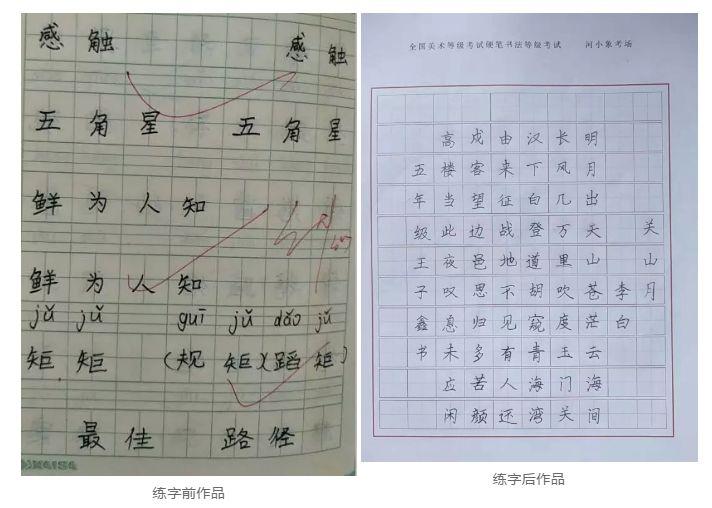 感 触 感 触
五 角 星 五 角 星
鲜 为 人 知
鲜 为 人 知
jǔ jǔ guī jǔ dǎo jǔ
矩 矩 (规 矩)(蹈 矩)
最 佳 路 径
练字前作品
全国美术等级考试硬笔书法等级考试 河小象考场
关山月
李白
明月出天山苍茫云海间
长风几万里吹度玉门关
汉下白登道胡窥青海湾
由来征战地不见有人还
戍客望边邑思归多苦颜
高楼当此夜叹息未应闲
五年级王子鑫书
练字后作品